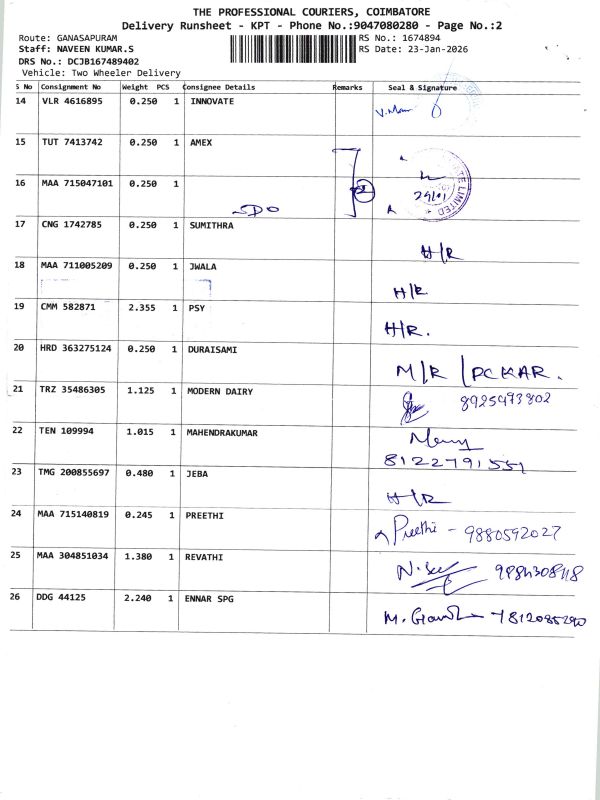 THE PROFESSIONAL COURIERS, COIMBATORE
Delivery Runsheet - KPT - Phone No.:9047080280 - Page No.:2
Route: GANASAPURAM RS No.: 1674894
Staff: NAVEEN KUMAR.S RS Date: 23-Jan-2026
DRS No.: DCJB167489402
Vehicle: Two Wheeler Delivery
S No Consignment No Weight PCS Consignee Details Remarks Seal & Signature
14 VLR 4616895 0.250 1 INNOVATE
15 TUT 7413742 0.250 1 AMEX
16 MAA 715047101 0.250 1
SDO 2
17 CNG 1742785 0.250 1 SUMITHRA H/R
18 MAA 711005209 0.250 1 JWALA H/R
19 CMM 582871 2.355 1 PSY H/R.
20 HRD 363275124 0.250 1 DURAISAMI M/R /PCKAR.
21 TRZ 35486305 1.125 1 MODERN DAIRY 8925493802
22 TEN 109994 1.015 1 MAHENDRAKUMAR
8122791551
23 TMG 200855697 0.480 1 JEBA H/R
24 MAA 715140819 0.245 1 PREETHI Preethi - 9880592027
25 MAA 304851034 1.380 1 REVATHI
26 DDG 44125 2.240 1 ENNAR SPG 7812085290